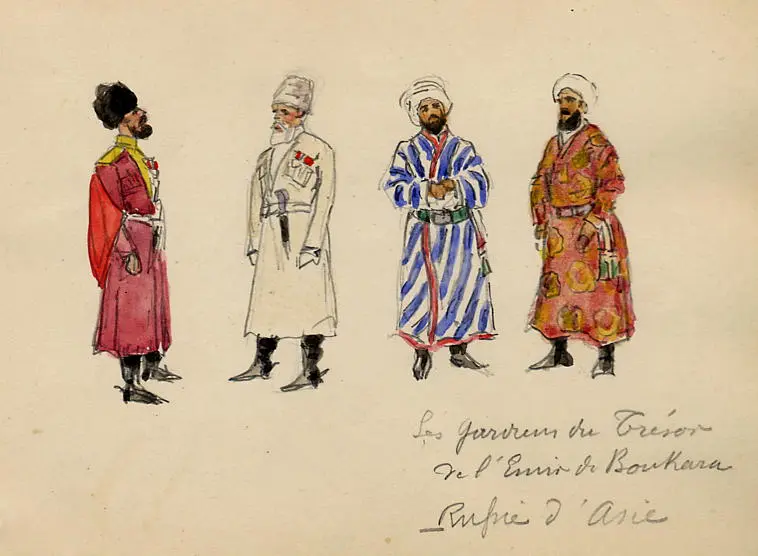 Les gardiens du Trésor
de l'Emir de Boukara
Russie d'Asie